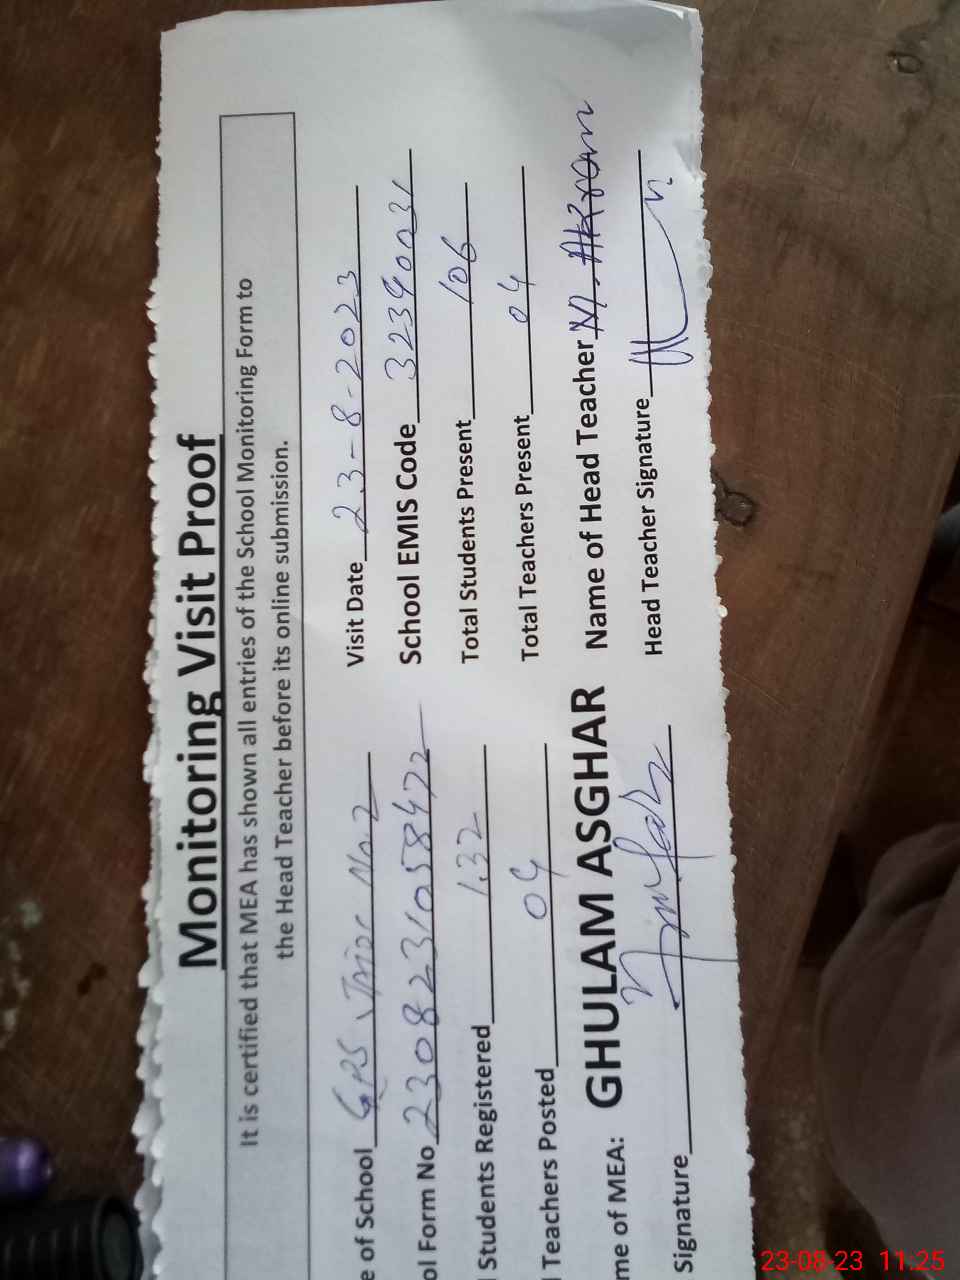 Monitoring Visit Proof
It is certified that MEA has shown all entries of the School Monitoring Form to
the Head Teacher before its online submission.
e of School GPS No.2 Visit Date 23-8-2023
ol Form No 2308231058472 School EMIS Code 32340031
Students Registered 132 Total Students Present 106
Teachers Posted 04 Total Teachers Present 04
me of MEA: GHULAM ASGHAR Name of Head Teacher M. Akram
Signature Head Teacher Signature
23-08-23 11:25